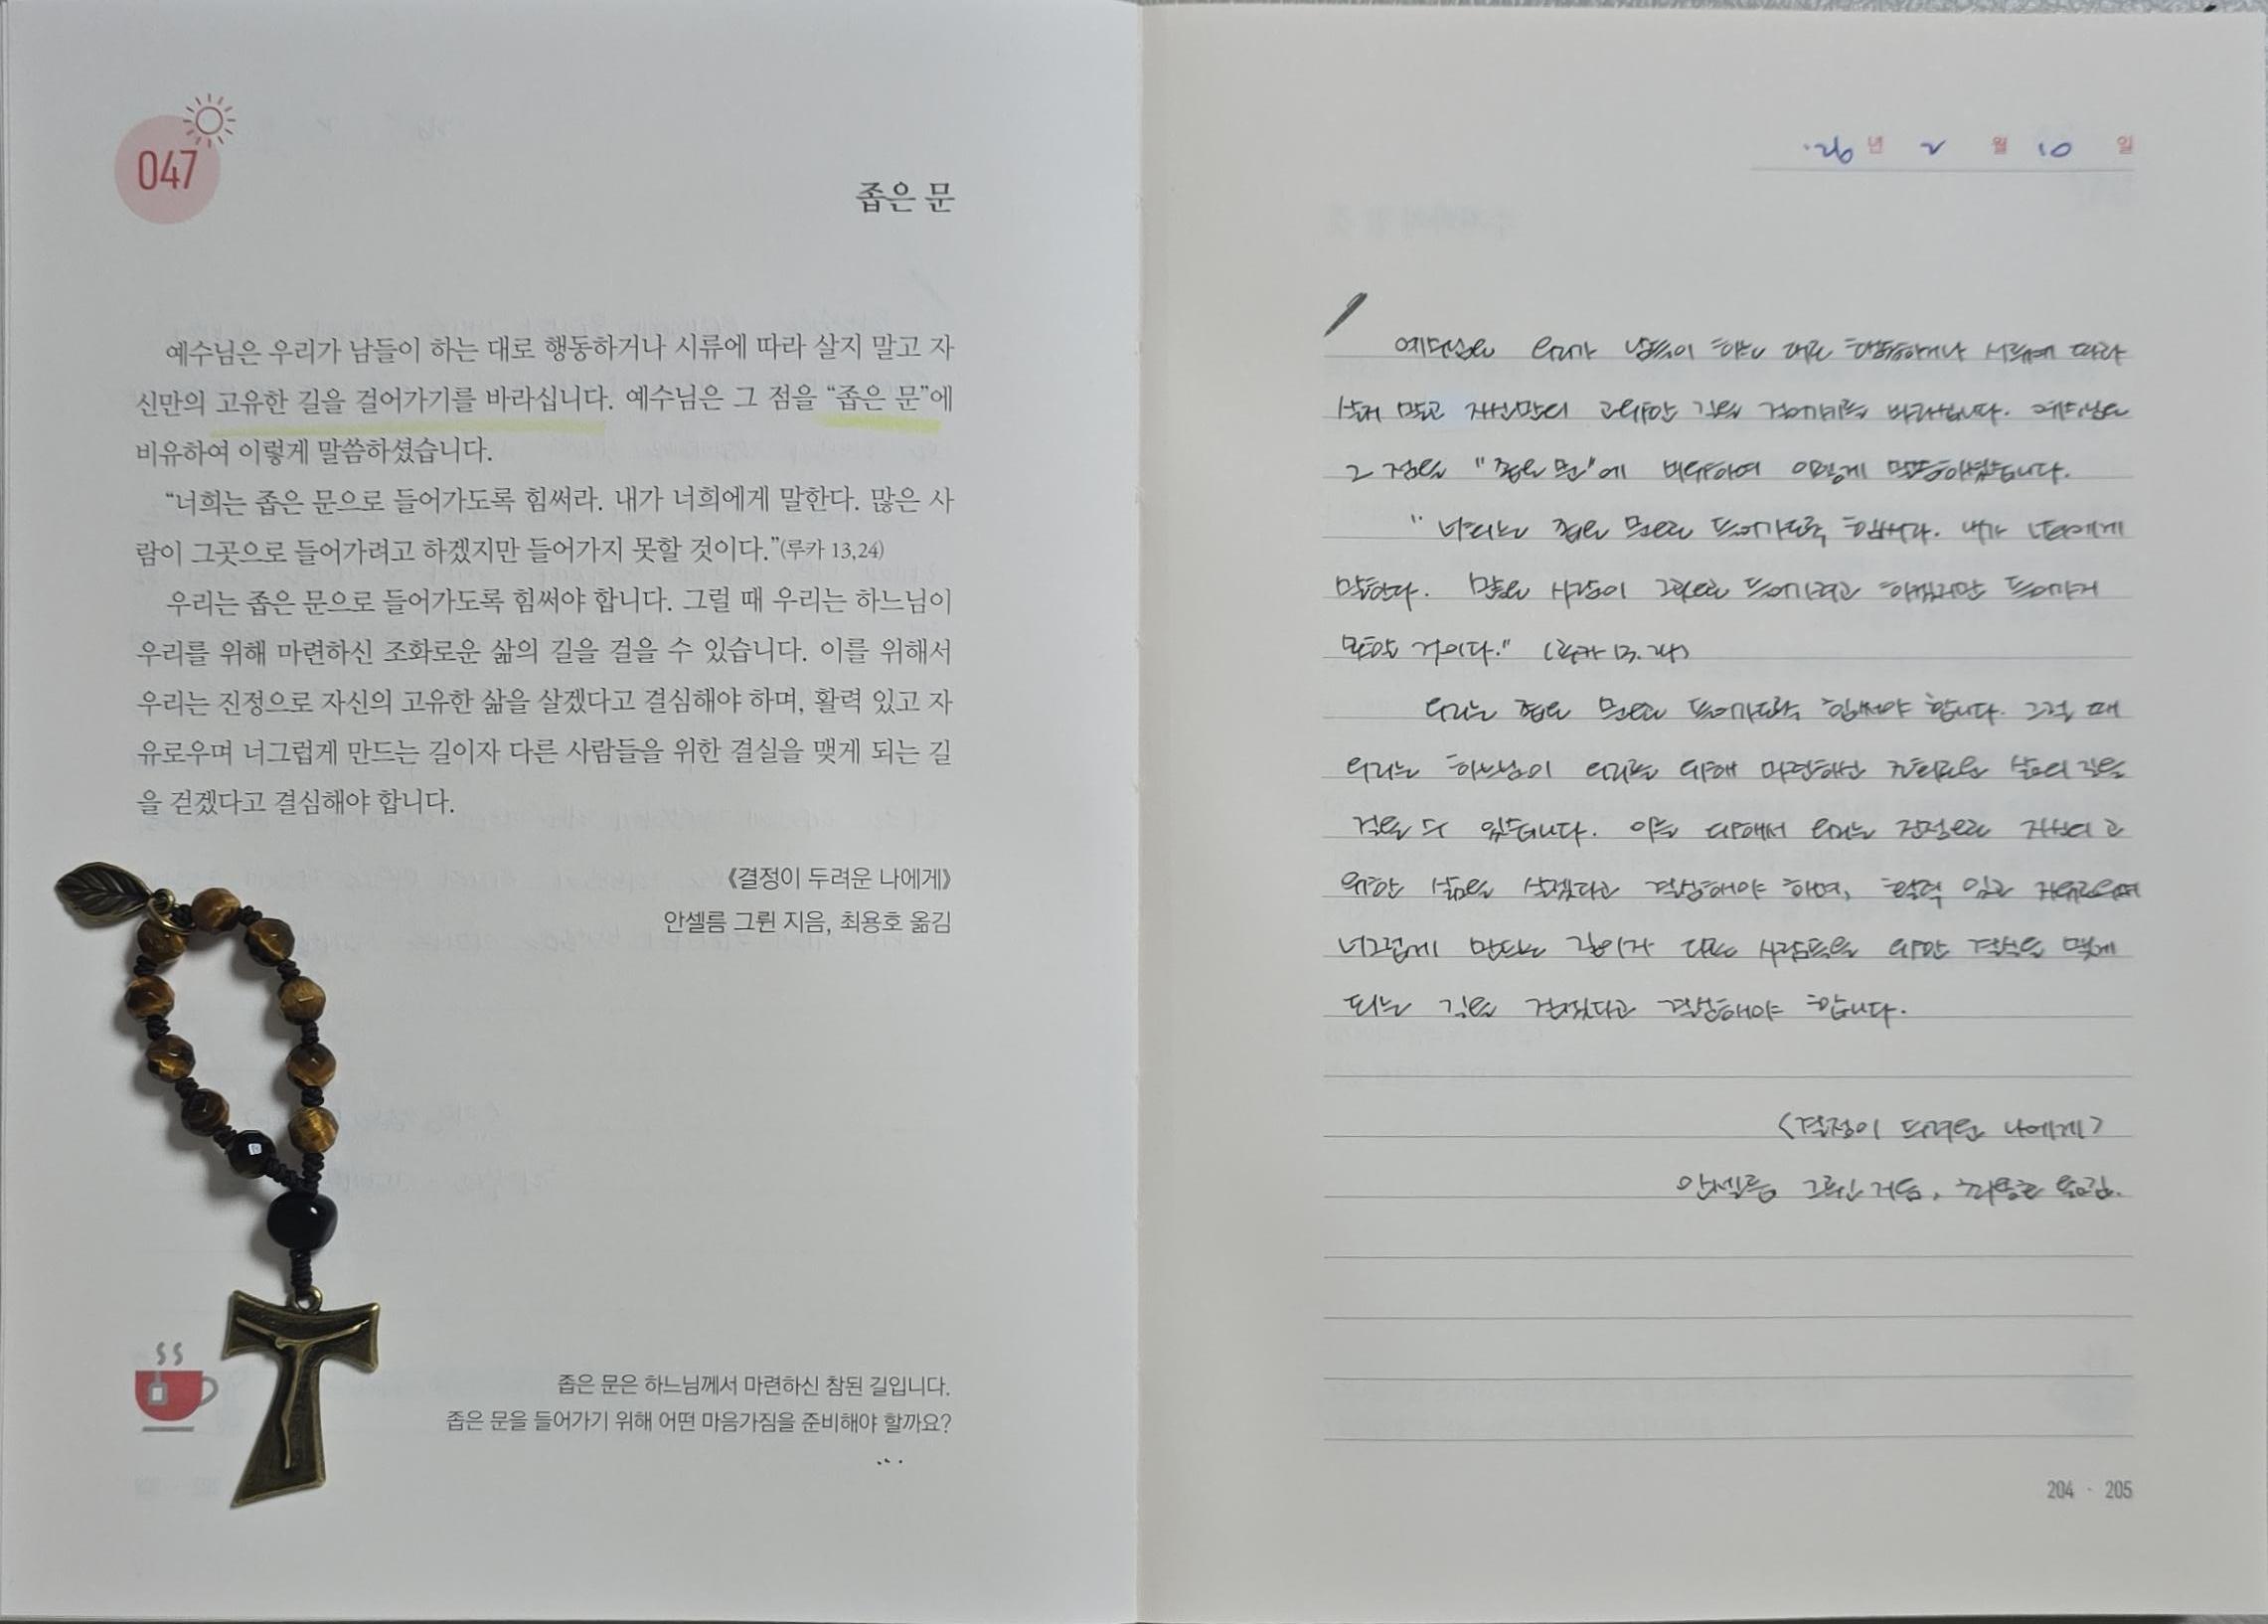 047
좁은 문
예수님은 우리가 남들이 하는 대로 행동하거나 시류에 따라 살지 말고 자
신만의 고유한 길을 걸어가기를 바라십니다. 예수님은 그 점을 “좁은 문”에
비유하여 이렇게 말씀하셨습니다.
“너희는 좁은 문으로 들어가도록 힘써라. 내가 너희에게 말한다. 많은 사
람이 그곳으로 들어가려고 하겠지만 들어가지 못할 것이다.”(루카 13,24)
우리는 좁은 문으로 들어가도록 힘써야 합니다. 그럴 때 우리는 하느님이
우리를 위해 마련하신 조화로운 삶의 길을 걸을 수 있습니다. 이를 위해서
우리는 진정으로 자신의 고유한 삶을 살겠다고 결심해야 하며, 활력 있고 자
유로우며 너그럽게 만드는 길이자 다른 사람들을 위한 결실을 맺게 되는 길
을 걷겠다고 결심해야 합니다.
《결정이 두려운 나에게》
안셀름 그륀 지음, 최용호 옮김
좁은 문은 하느님께서 마련하신 참된 길입니다.
좁은 문을 들어가기 위해 어떤 마음가짐을 준비해야 할까요?
'26 년 2 월 10 일
예수님은 우리가 남들이 하는 대로 행동하거나 시류에 따라
살지 말고 자신만의 고유한 길을 걸어가기를 바라십니다. 예수님은
그 점을 "좁은 문"에 비유하여 이렇게 말씀하셨습니다.
"너희는 좁은 문으로 들어가도록 힘써라. 내가 너희에게
말한다. 많은 사람이 그곳으로 들어가려고 하겠지만 들어가지
못할 것이다." (루카 13. 24)
우리는 좁은 문으로 들어가도록 힘써야 합니다. 그럴 때
우리는 하느님이 우리를 위해 마련하신 조화로운 삶의 길을
걸을 수 있습니다. 이를 위해서 우리는 진정으로 자신의 고
유한 삶을 살겠다고 결심해야 하며, 활력 있고 자유로우며
너그럽게 만드는 길이자 다른 사람들을 위한 결실을 맺게
되는 길을 걷겠다고 결심해야 합니다.
<결정이 두려운 나에게>
안셀름 그륀 지음, 최용호 옮김.
204 · 205